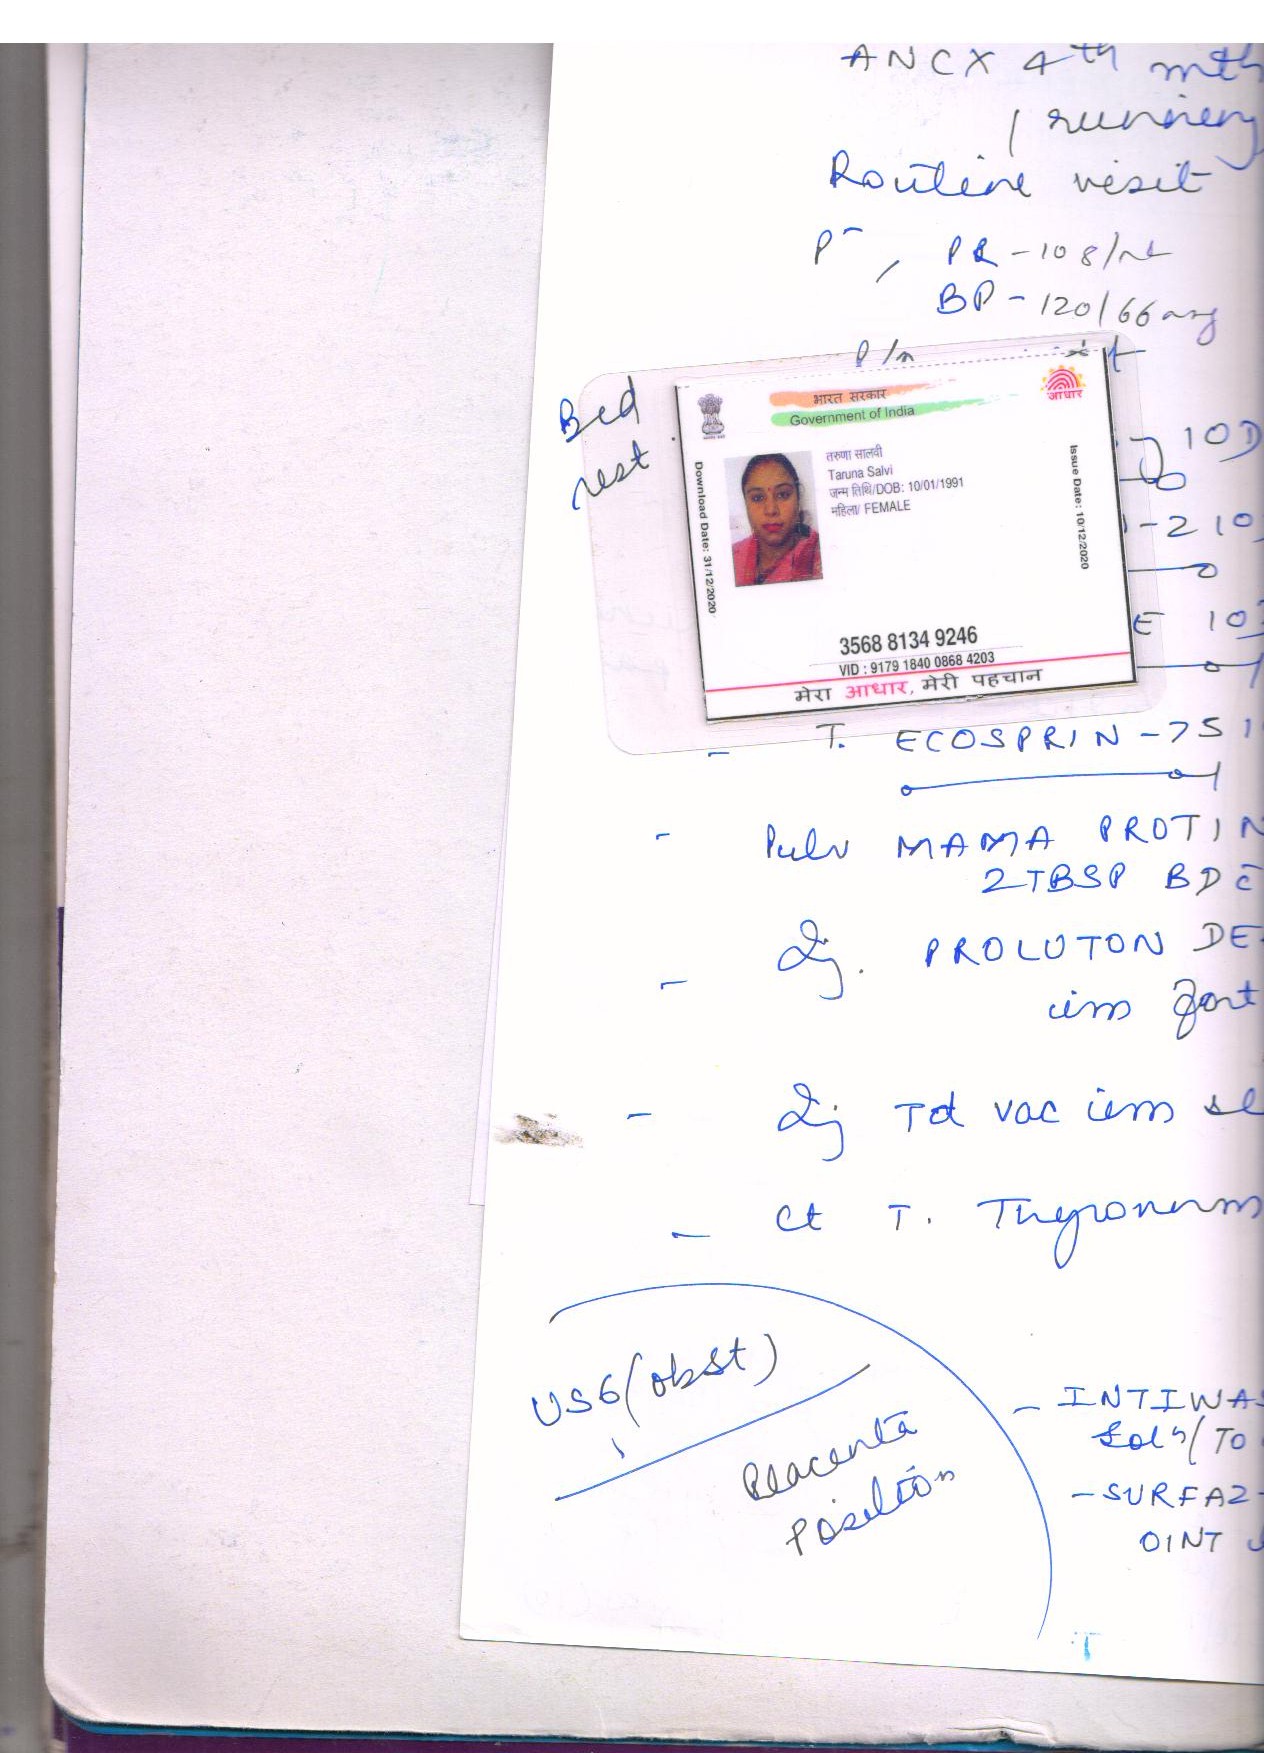 ANCX 4th mth
/ running
Routine visit
P-, PR - 108/
BP - 120/66
P/
Bed
rest
भारत सरकार
Government of India
आधार
तरुणा सालवी
Taruna Salvi
जन्म तिथि/DOB: 10/01/1991
महिला/ FEMALE
Download Date: 31/12/2020
Issue Date: 10/12/2020
3568 8134 9246
VID : 9179 1840 0868 4203
मेरा आधार, मेरी पहचान
10D
-2 10
E 10
- T. ECOSPRIN-75 1
- Pulv MAMA PROTIN
2TBSP BD c̄
- Inj. PROLUTON DE
im fort
- Inj Td vac im
- ct T. Thyronorm
USG (obst)
Placenta
position
- INTIWAS
Soln/TO
- SURFAZ-
OINT